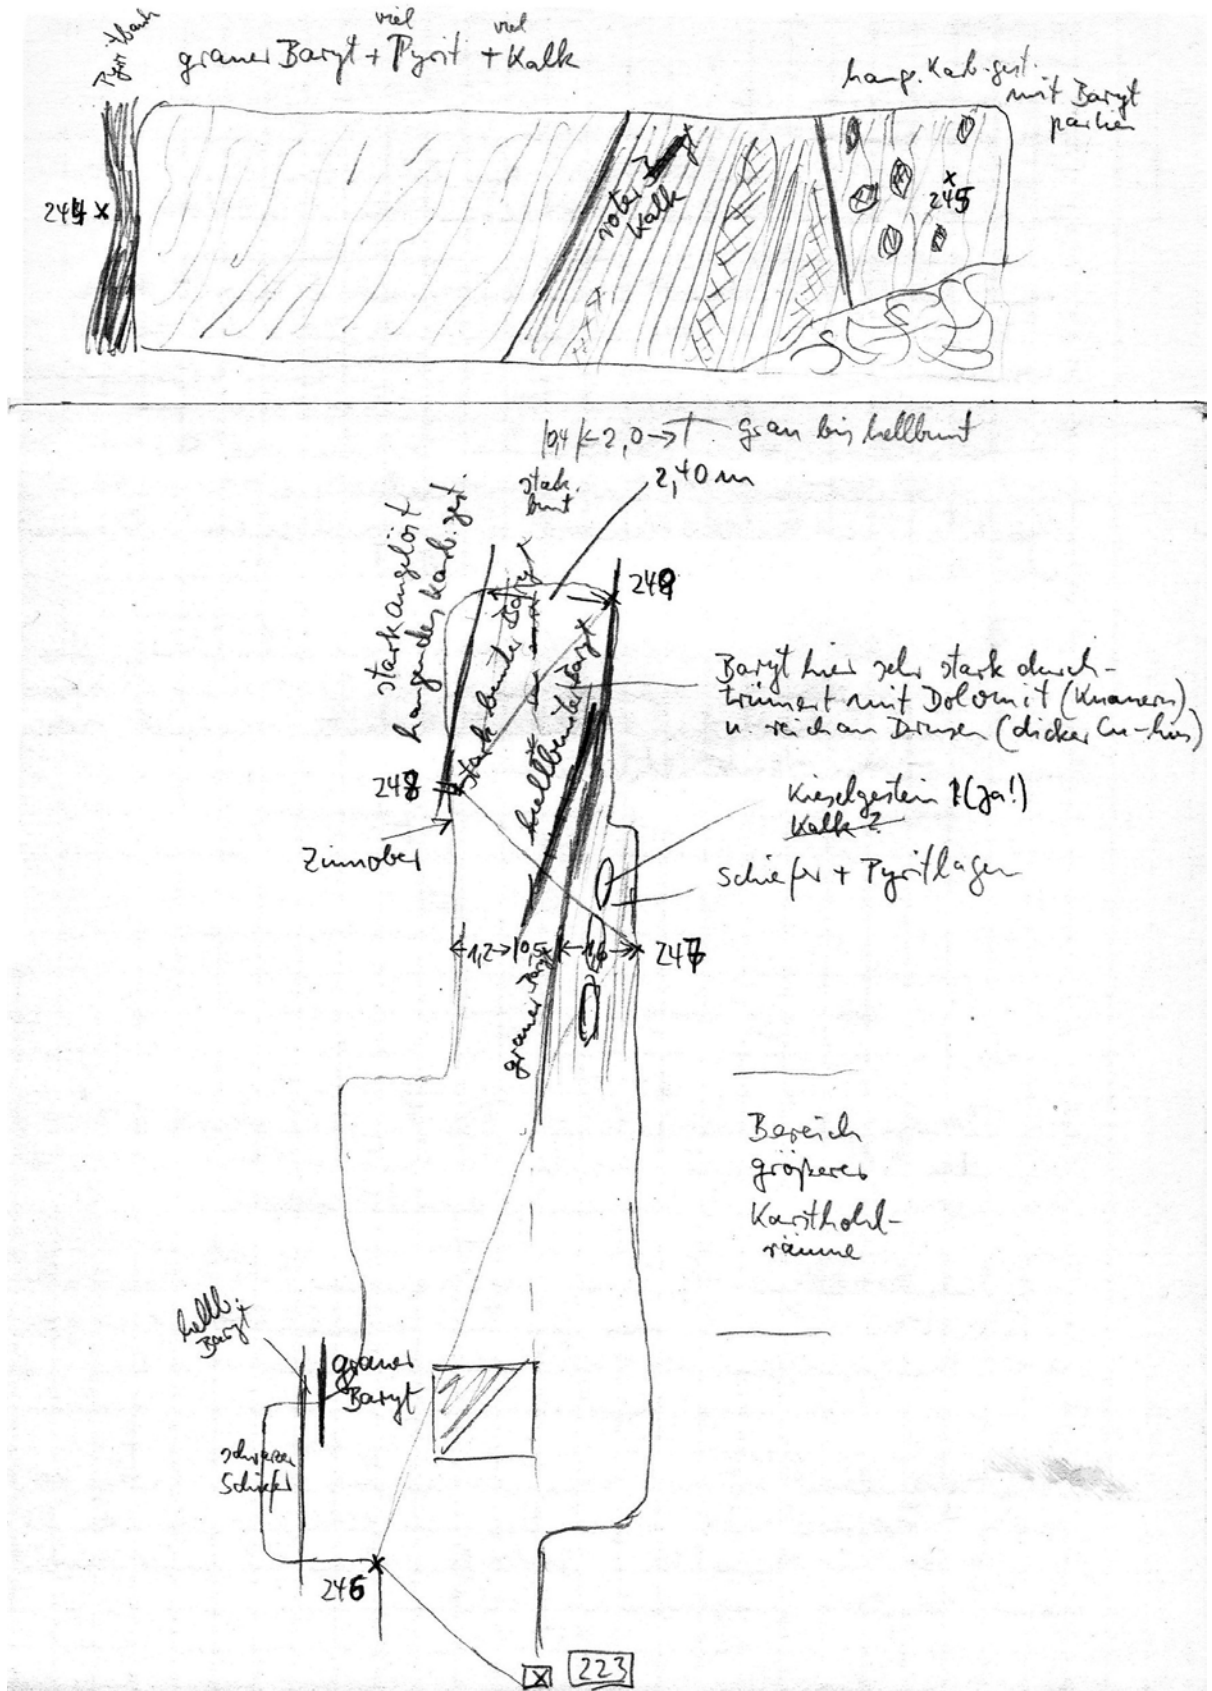 Pyritbank
viel viel
grauer Baryt + Pyrit + Kalk
hang. Karb.gest.
mit Baryt
partien
244
roter
Kalk
245
|0,4|←2,0→| grau bis hellbunt
stark
bunt
2,40 m
stark angelöst
hangendes Karb.gest
stark bunter Baryt
hellbunter Baryt
249
Baryt hier sehr stark durch-
trümert mit Dolomit (Knauern)
u. reich an Drusen
248
Zinnober
Kieselgestein (ja!)
Kalk?
Schiefer + Pyritlagen
←1,2→|0,5|←1,6→
247
grauer Baryt
Bereich
größerer
Karsthohl-
räume
hellb.
Baryt
grauer
Baryt
schwarzer
Schiefer
246
223